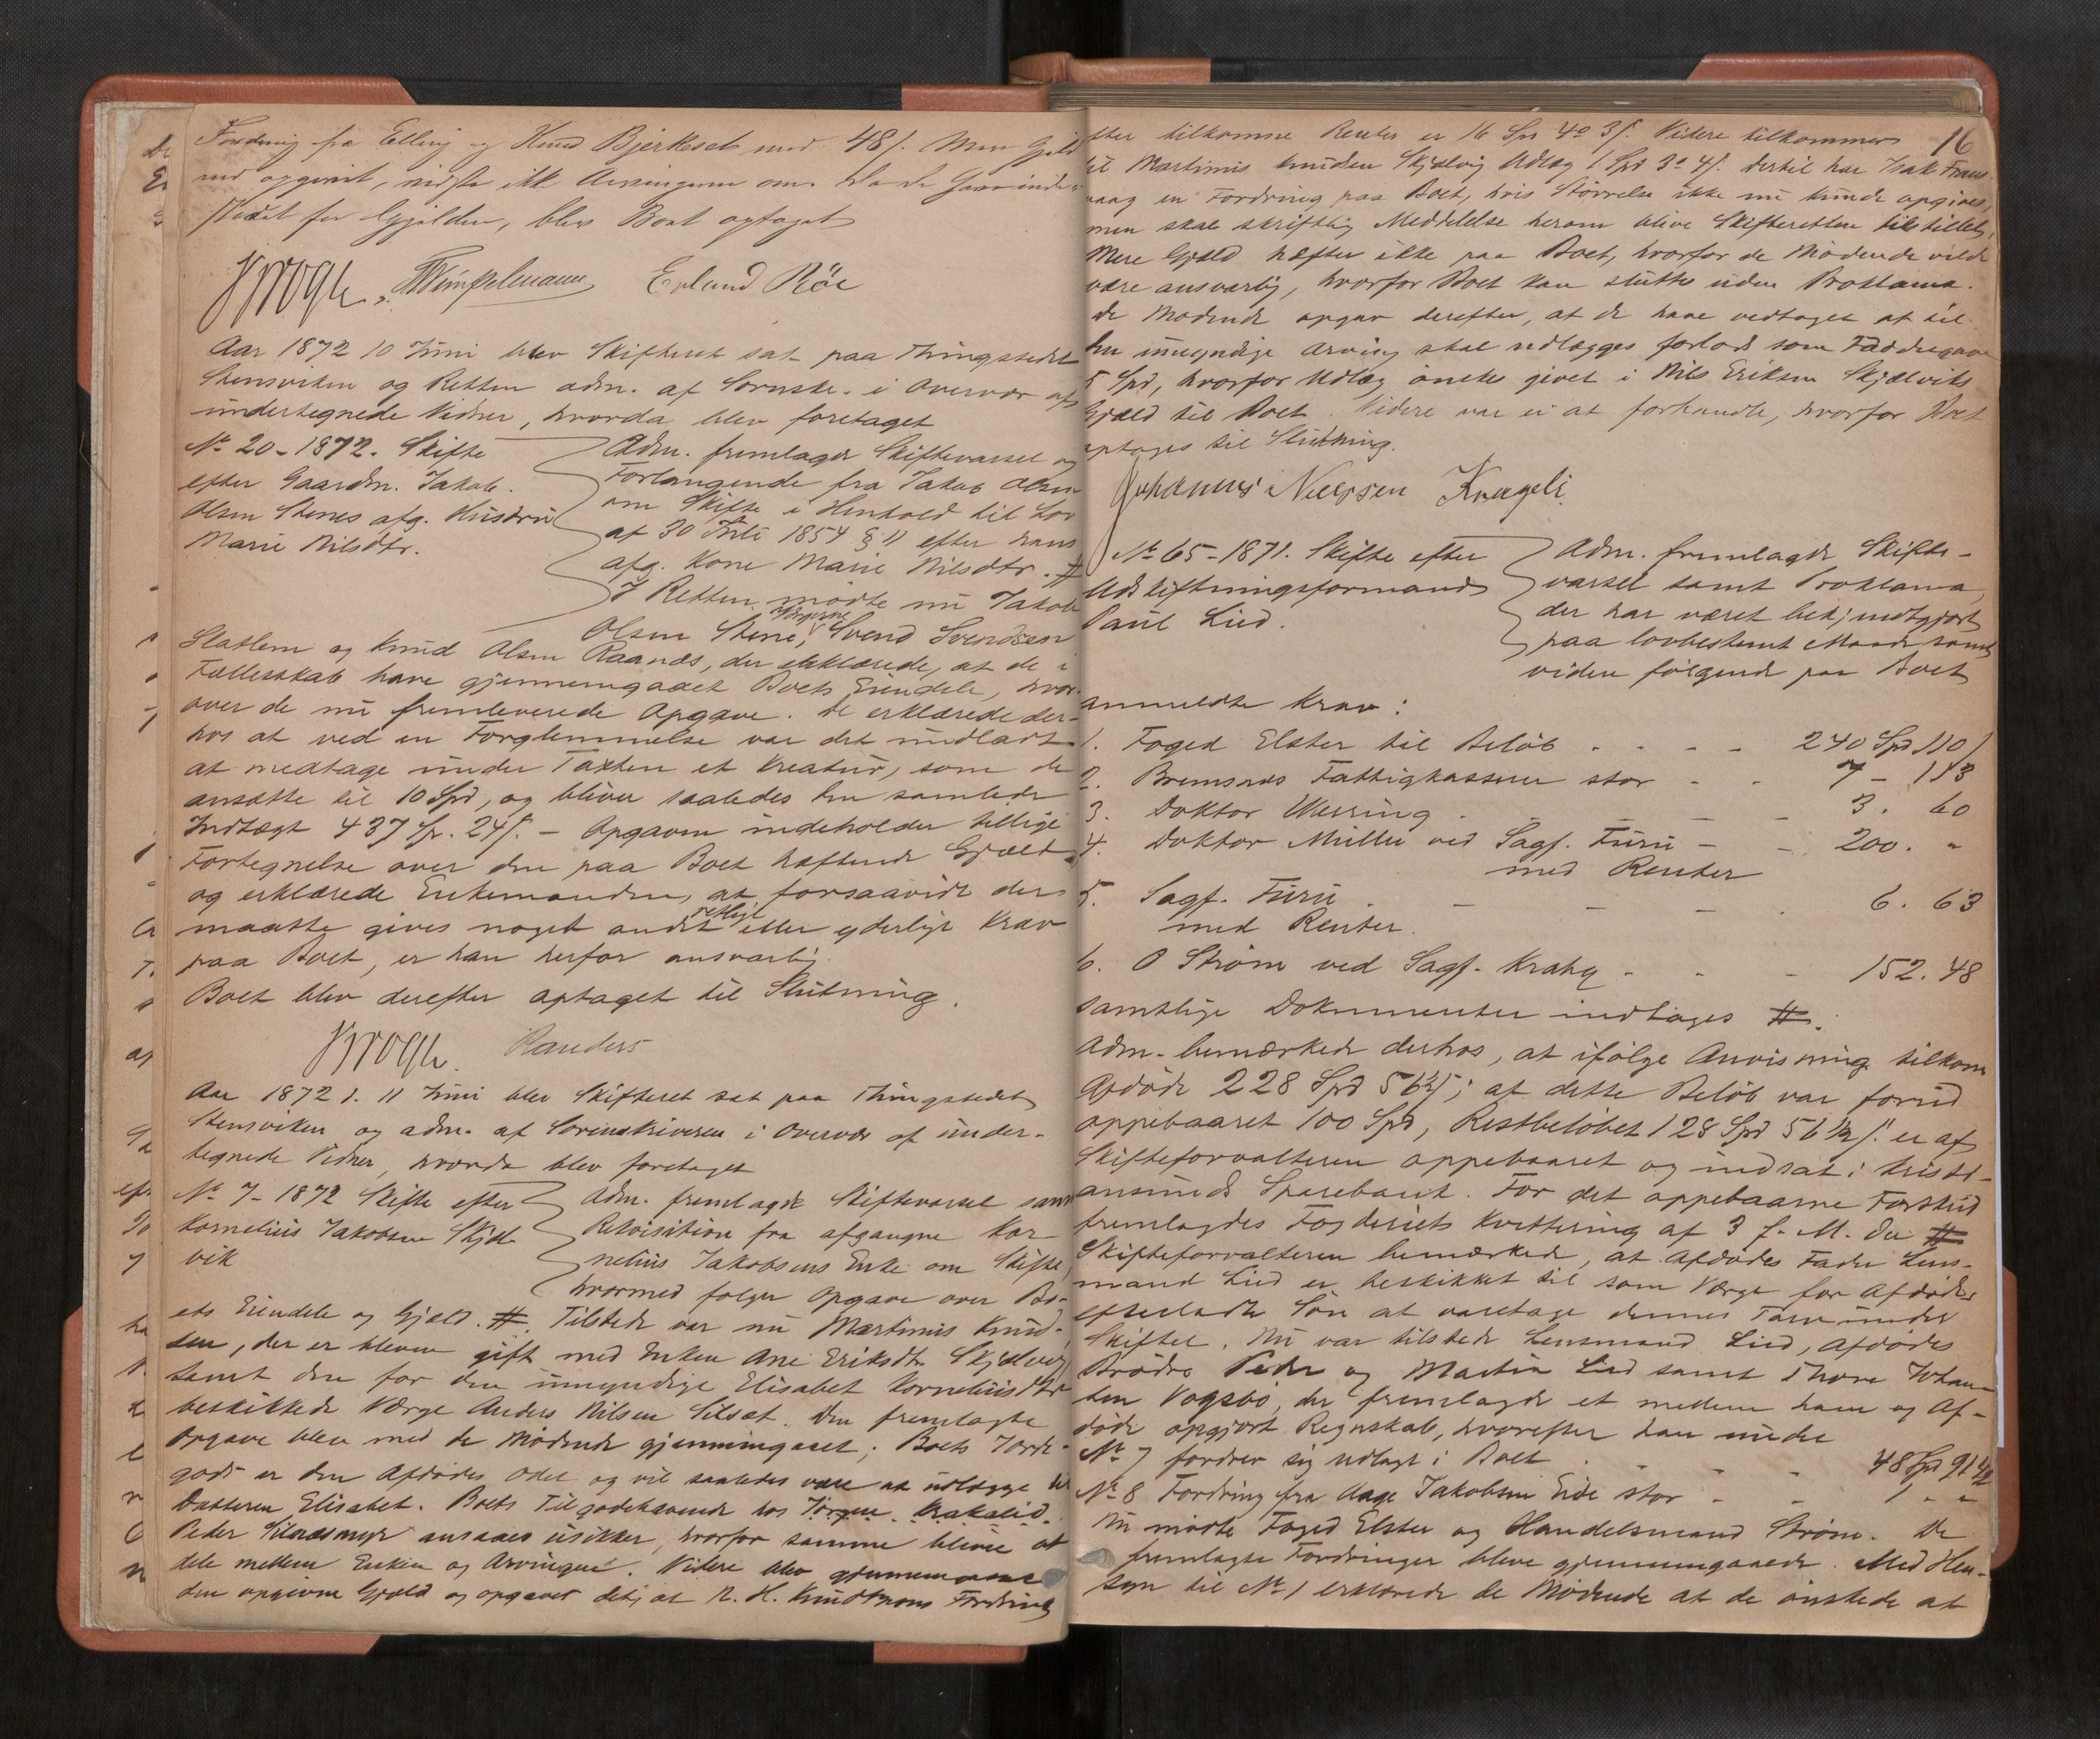 Fordring fra Elling og Knud Bjerkeset med 48 s. Men Gjeld
ind opgivet, vidste ikke Arvingerne om. Da de Garanterede
stedet for Gjælden, blev Boet optaget
Krogh. Wimpelmann Erland Röe
Aar 1872 10 Juni blev Skifteret sat paa Thingstedet
Stensviken og Retten adm. af Sornskr. i Overvær af
undertegnede Vidner, hvorda blev foretaget
No 20-1872. Skifte
efter Gaardm. Jakob
Olsen Stenes afg. Hustru
Marie Nilsdtr.
Adm. fremlagde Skiftevarsel og
Forlangende fra Jakob Olsen
om Skifte i Henhold til Lov
af 30 Juli 1854 § 11 efter hans
afg. Kone Marie Nilsdtr. #
I Retten mødte nu Jakob
Olsen Stene, Værgerne Svend Svendsen
Slatlem og Knud Olsen Raanæs, der erklærede, at de i
Fællesskab have gjennemgaaet Boets Eiendele, hvor-
over de nu fremleverede Opgave. De erklærede der-
hos at ved en Forglemmelse var det undladt
at medtage under Taxten et Kreatur, som de
ansatte til 10 Spd, og bliver saaledes den samlede
Indtægt 437 Sp. 24 s. - Opgaven indeholder tillige
Fortegnelse over den paa Boet hæftende Gjæld
og erklærede Enkemanden, at forsaavidt der
maatte gives noget andet retligt eller yderlige Krav
paa Boet, er han herfor ansvarlig
Boet blev derefter optaget til Slutning.
Krogh. Randers
Aar 1872 d. 11 Juni blev Skifteret sat paa Thingstedet
Stensviken og adm. af Sorenskriveren i Overvær af under-
tegnede Vidner, hvorda blev foretaget
No 7-1872 Skifte efter
Kornelius Jakobsen Skjæl-
vik
Adm. fremlagde Skiftevarsel samt
Rekvisition fra afgangne Kor-
nelius Jakobsens Enke om Skifte,
hvormed følger Opgave over Bo-
ets Eiendele og Gjæld. #. Tilstede var nu Martinus Knud-
sen, der er bleven gift med Enken Ane Eriksdtr Skjælvig
samt den for den umyndige Elisabet Korneliusdtr
beskikkede Værge Anders Nilsen Silsæt. Den fremlagte
Opgave blev med de Mødende gjennemgaaet; Boets Jorde-
gods er den Afdødes Odel og vil saaledes være at udlægge til
Datteren Elisabet. Boets Tilgodehavende hos Jörgen Krakalid.
Peder Silnæsmyr ansaaes usikker, hvorfor samme bliver at
dele mellem Enken og Arvingen. Videre blev gjennemgaaet
den opgivne Gjæld og opgaves det, at N. H. Knudtzons Fordring
16
efter tilkomne Renter er 16 Spd 4 o 3 s. Videre tilkommer
til Martinus Knudsen Skjælvig Udlæg 1 Spd 3 o 4 s. Dertil har Isak Frans
vaag en Fordring paa Boet, hvis Størrelse ikke nu kunde opgives,
men skal skriftlig Meddelelse herom blive Skifteretten tilstillet.
Mere Gjæld hæfter ikke paa Boet, hvorfor de Mødende vilde
være ansvarlig, hvorfor Boet kan sluttes uden Proklama.
De Mødende opgav derefter, at de have vedtaget at til
den umyndige Arving skal udlægges forlods som Faddergave
5 Spd, hvorfor Udlæg önskes givet i Nils Eriksen Skjælviks
Gjæld til Boet. Videre var ei at forhandle, hvorfor Boet
optages til Slutning.
Johannes Nielssen Kvageli
No 65-1871. Skifte efter
Udskiftningsformand
Paul Lied.
Adm. fremlagde Skifte-
varsel samt Proklama,
der har været bekjendtgjort
paa lovbestemt Maade samt
viden følgende paa Boet
anmeldte Krav:
1. Foged Elster til Beløb - - - - 240 Spd. 110 s
2. Bremsnes Fattigkasserer stor - - 7 - 113
3. Doktor Werring - - - - 3. 60
4. Doktor Müller ved Sagf. Furu - - 200. "
med Renter
5. Sagf. Furu - - - - 6. 63
med Renter.
6. O Strøm ved Sagf. Krahg - - - 152. 48
Samtlige Dokumenter indtages #.
Adm. bemærkede derhos, at ifølge Anvisning tilkom
Afdøde 228 Spd 56½ s; at dette Beløb var forud
oppebaaret 100 Spd, Restbeløbet 128 Spd 56½ s. er af
Skifteforvalteren oppebaaret og indsat i Kristi-
ansunds Sparebank. For det oppebaarne Forskud
fremlagdes Fogderiets Kvittering af 3 f. M. der #
Skifteforvalteren bemærkede, at Afdødes Fader Lens-
mand Lied er beskikket til som Værge for Afdødes
efterladte Søn at varetage dennes Tarv under
Skiftet. Nu var tilstede Lensmand Lied, Afdødes
Brödre Peder og Martin Lied samt Thore Johan-
sen Vogsbö, der fremlagde et mellem ham og Af-
døde opgjort Regnskab, hvorefter han under
No 7 fordrer sig udlagt i Boet - - - - 48 Spd 91½
No 8 Fordring fra Aage Jakobsen Eide stor - - 1 " "
Nu mødte Foged Elster og Handelsmand Strøm. De
fremlagte Fordringer bleve gjennemgaaede. Med Hen-
syn til No 1 erklærede de Mødende at de ønskede at